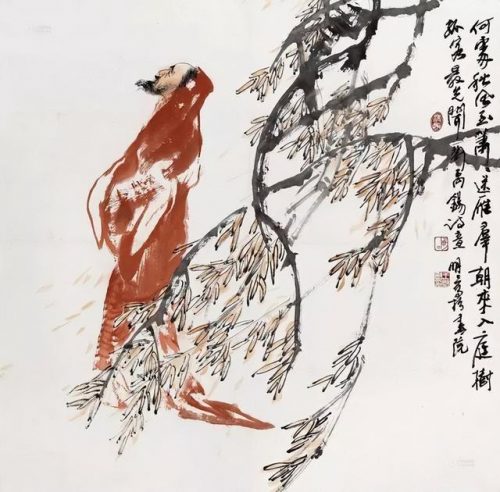 何處秋風至蕭々送雁羣朝來入庭樹
孤客最先聞劉禹錫詩意明書院